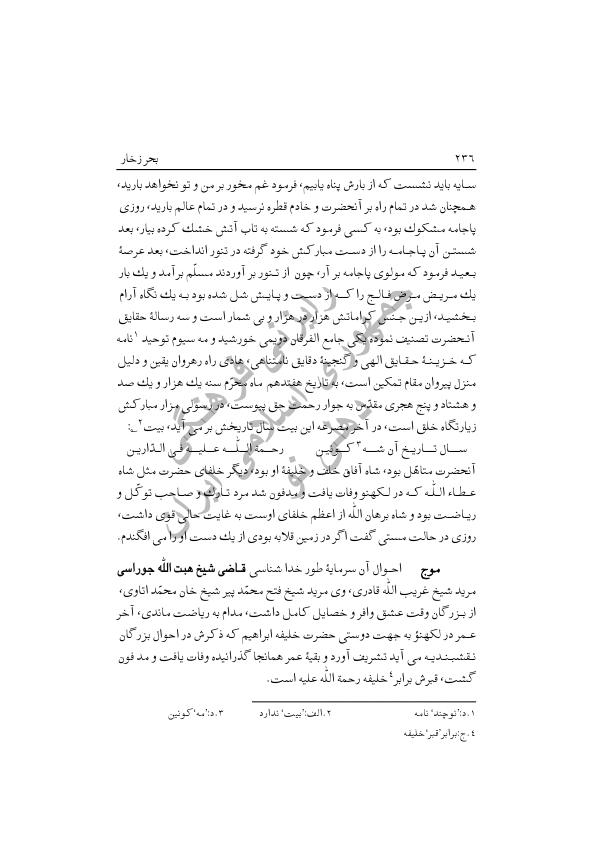 ۲۳۶ بحر زخار
سایه باید نشست که از بارش پناه یابیم، فرمود غم مخور بر من و تو نخواهد بارید،
همچنان شد در تمام راه بر آنحضرت و خادم قطره نرسید و در تمام عالم بارید، روزی
پاجامه مشکوك بود، به کسی فرمود که شسته به تاب آتش خشك کرده بیار، بعد
شستن آن پاجامه را از دست مبارکش خود گرفته در تنور انداخت، بعد عرصۀ
بعید فرمود که مولوی پاجامه بر آر، چون از تنور بر آوردند مسلّم برآمد و یك بار
یك مریض مرض فالج را که از دست و پایش شل شده بود به یك نگاه آرام
بخشید، ازین جنس کراماتش هزار در هزار و بی شمار است و سه رسالۀ حقایق
آنحضرت تصنیف نموده یکی جامع الفرقان دویمی خورشید و مه سیوم توحید ۱ نامه
که خزینۀ حقایق الهی و گنجینۀ دقایق نامتناهی، هادی راه رهروان یقین و دلیل
منزل پیروان مقام تمکین است، به تاریخ هفتدهم ماه محرّم سنه یك هزار و یك صد
و هشتاد و پنج هجری مقدّس به جوار رحمت حق پیوست، در رسولی مزار مبارکش
زیارتگاه خلق است، در آخر مصرعه این بیت سال تاریخش بر می آید، بیت۲:
سال تاریخ آن شه۳ کونین رحمة اللّه علیه فی الدّارین
آنحضرت متاهّل بود، شاه آفاق خلف و خلیفۀ او بود، دیگر خلفای حضرت مثل شاه
عطاء اللّه که در لکهنو وفات یافت و مدفون شد مرد تارك و صاحب توکّل و
ریاضت بود و شاه برهان اللّه از اعظم خلفای اوست به غایت حالی قوی داشت،
روزی در حالت مستی گفت اگر در زمین قلابه بودی از یك دست او را می افگندم.
موج احوال آن سرمایۀ طور خدا شناسی قاضی شیخ هبت اللّه جوراسی
مرید شیخ غریب اللّه قادری، وی مرید شیخ فتح محمّد پیر شیخ خان محمّد اتاوی،
از بزرگان وقت عشق وافر و خصایل کامل داشت، مدام به ریاضت ماندی، آخر
عمر در لکهنؤ به جهت دوستی حضرت خلیفه ابراهیم که ذکرش در احوال بزرگان
نقشبندیه می آید تشریف آورد و بقیۀ عمر همانجا گذرانیده وفات یافت و مد فون
گشت، قبرش برابر۴ خلیفه رحمة اللّه علیه است.
۱.د:’توچند‘ نامه ۲.الف:’بیت‘ ندارد ۳.د:’مه‘ کونین
۴.ج:برابر’قبر‘خلیفه
رایزنی فرهنگی
جمهوری اسلامی ایران
دهلی نو